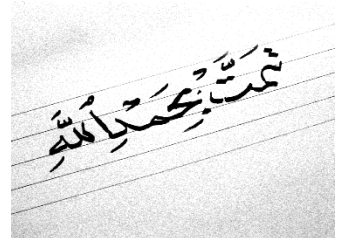 تمَتَّ بِحَمدِاللهِ